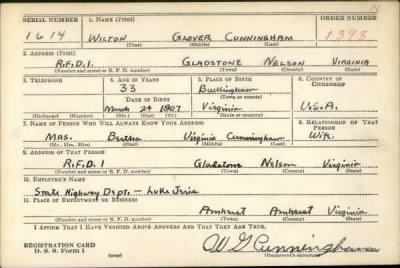 SERIAL NUMBER 1. NAME (Print) ORDER NUMBER
1614 WILTON GLOVER CUNNINGHAM 1393
(First) (Middle) (Last)
2. ADDRESS (Print)
R.F.D.1. GLADSTONE NELSON VIRGINIA
(Number and street or R. F. D. number) (Town) (County) (State)
3. TELEPHONE 4. AGE IN YEARS 5. PLACE OF BIRTH 6. COUNTRY OF CITIZENSHIP
33 Buckingham
DATE OF BIRTH (Town or county)
March 24 1907 Virginia U.S.A.
(Exchange) (Number) (Mo.) (Day) (Yr.) (State or country)
7. NAME OF PERSON WHO WILL ALWAYS KNOW YOUR ADDRESS 8. RELATIONSHIP OF THAT PERSON
Mrs. Bertha Virginia Cunningham Wife
(Mr., Mrs., Miss) (First) (Middle) (Last)
9. ADDRESS OF THAT PERSON
R.F.D.1 Gladstone Nelson Virginia
(Number and street or R. F. D. number) (Town) (County) (State)
10. EMPLOYER'S NAME
State Highway Dept. — Luke
11. PLACE OF EMPLOYMENT OR BUSINESS
Amherst Amherst Virginia
(Number and street or R. F. D. number) (Town) (County) (State)
I AFFIRM THAT I HAVE VERIFIED ABOVE ANSWERS AND THAT THEY ARE TRUE.
REGISTRATION CARD
D. S. S. Form 1 (over) W G Cunningham
(Registrant's signature)